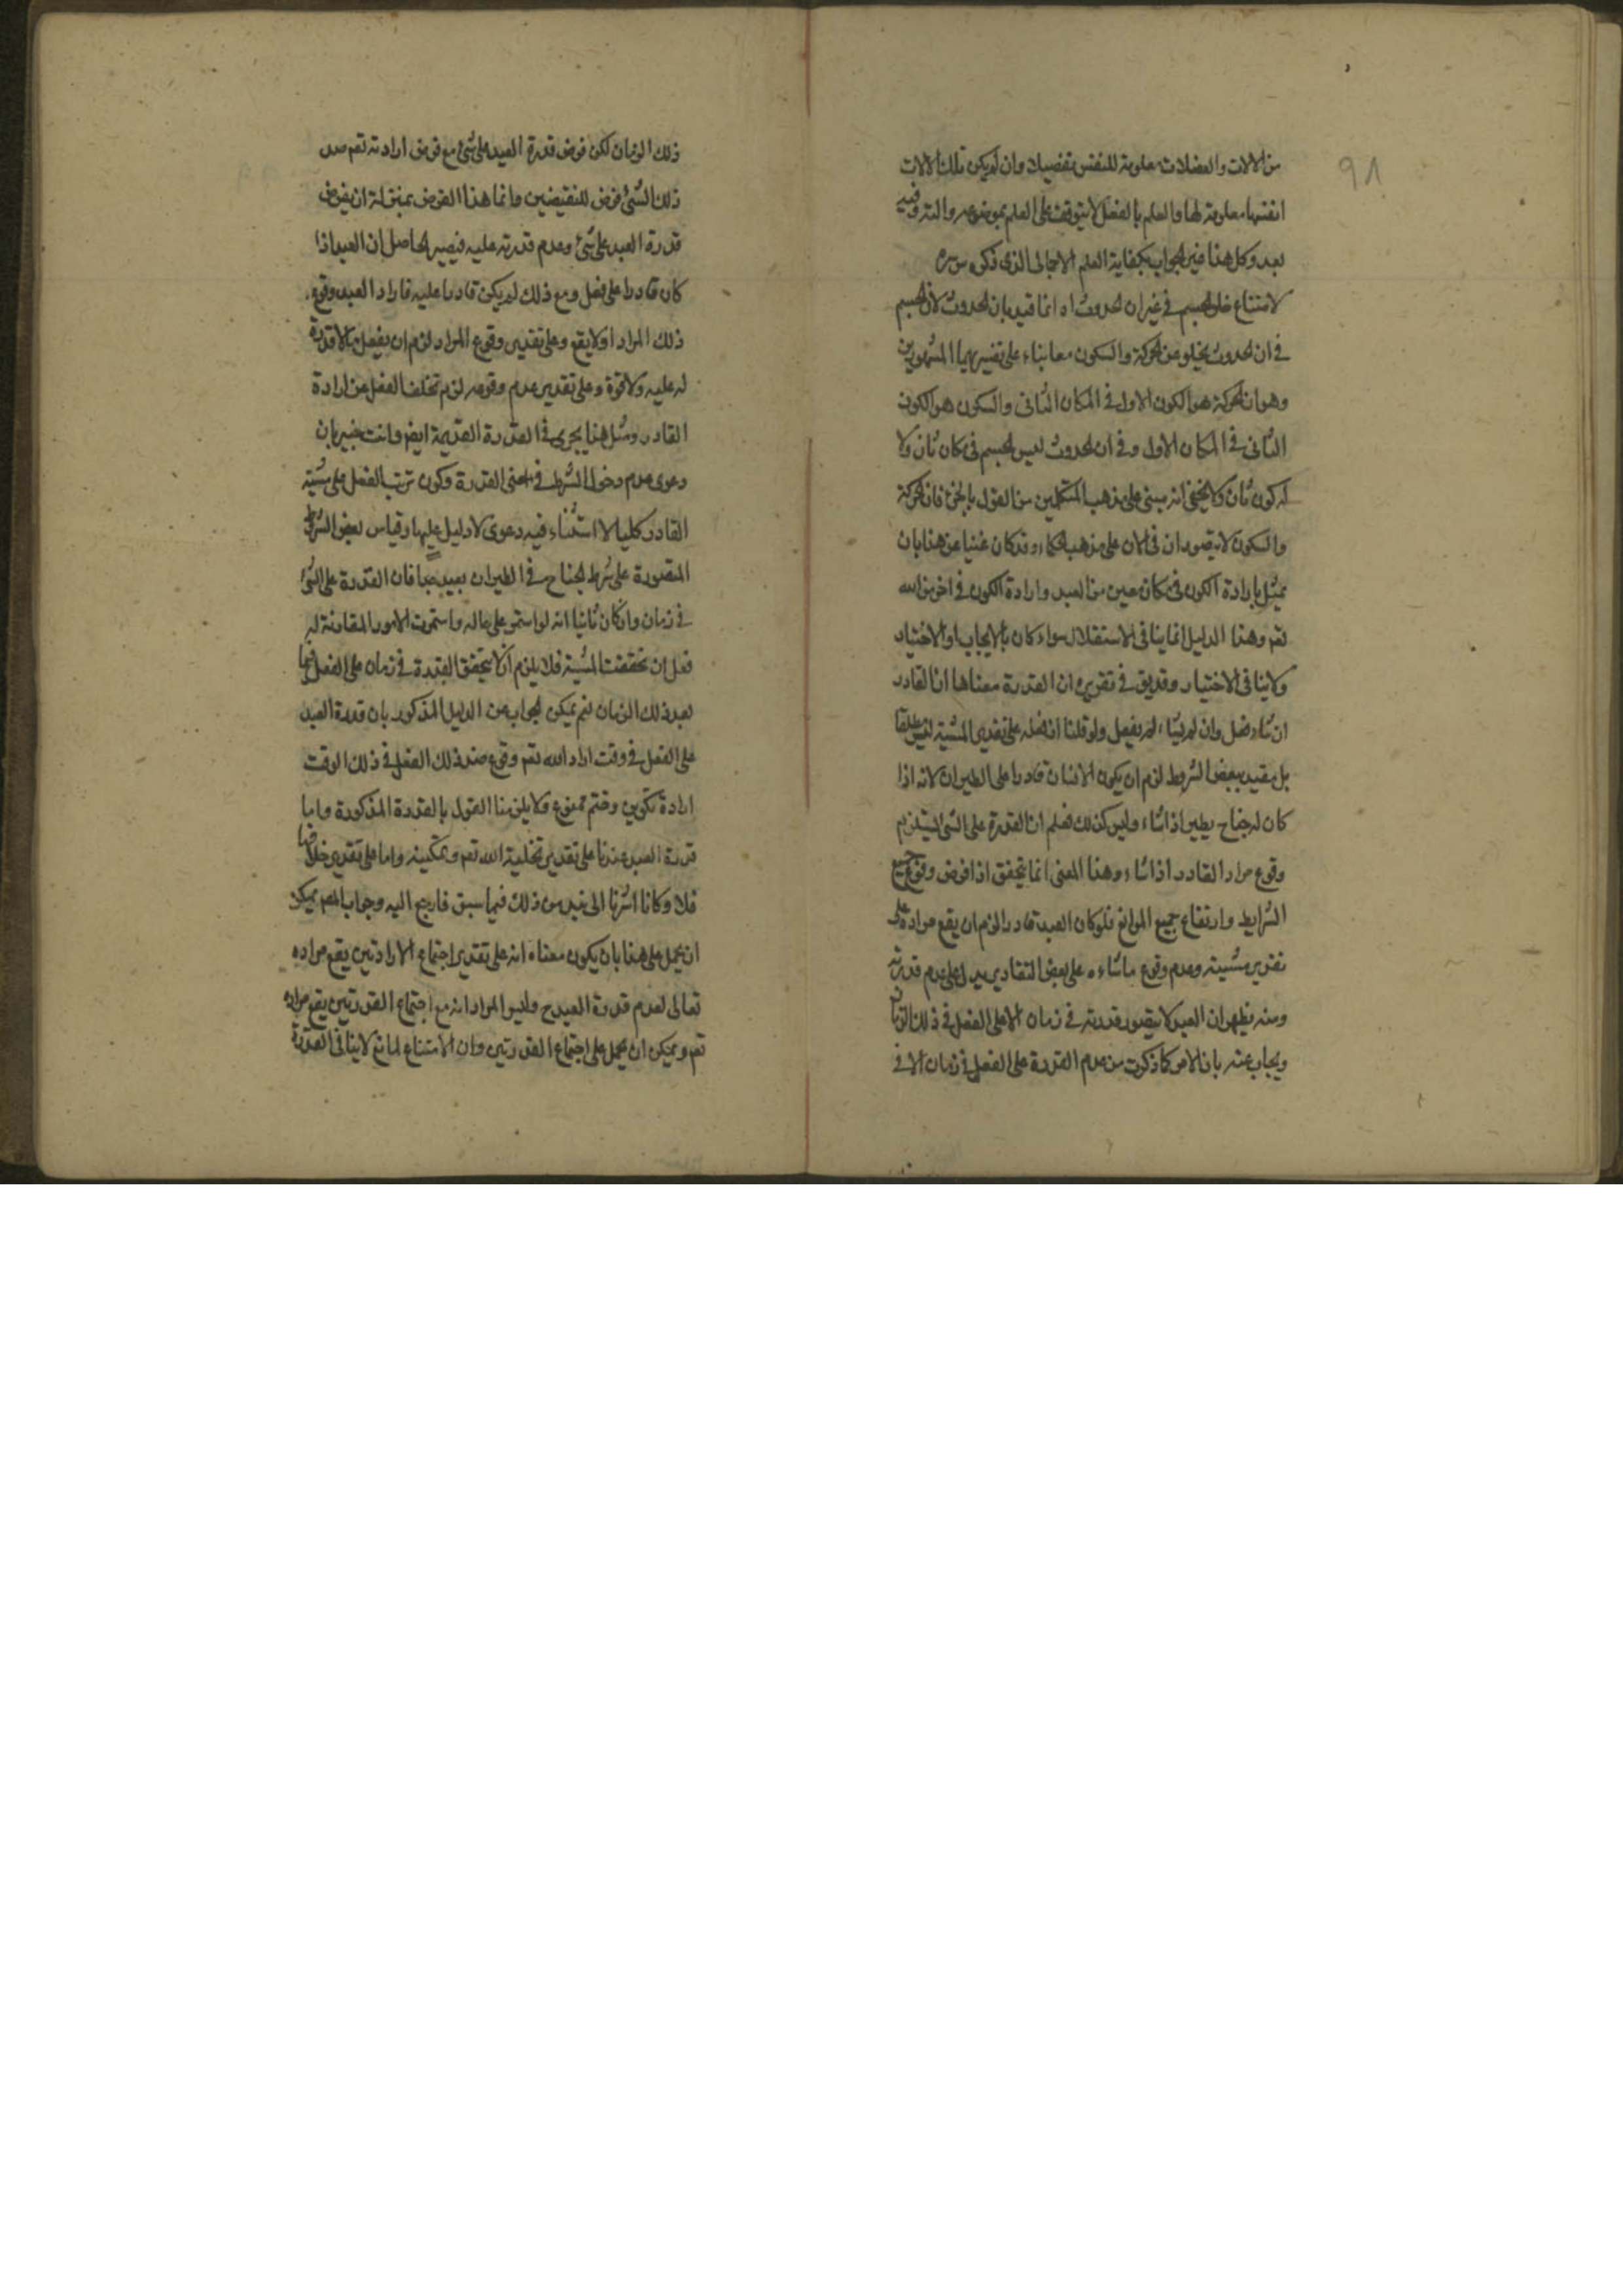 ٩٨
من الالات والعضلات معلومة للنفس بتفصيلات وان لم يكن تلك الالات
انفسها معلومة لها والعلم بالفعل لا يتوقف على العلم بموضوعه والته وفيه
بعد وكل هذا فى الجواب بكفاية العلم الاجمالى الذى ذكره
لامتناع خلو الجسم فى غير ان الحدوث اه انما قيد بان الحدوث لان الجسم
فى ان الحدوث يخلو عن الحركة والسكون معا بناء على تفسيريهما المشهورين
وهو ان الحركة هو الكون الاول فى المكان الثانى والسكون هو الكون
الثانى فى المكان الاول وفى ان الحدوث ليس الجسم فى مكان ثان ولا
له كون ثان ولا يخفى انه مبنى على مذهب المتكلمين من القول بالجزء فان الحركة
والسكون لا يتصوران فى الان على مذهب الحكماء وقد كان غنيا عن هذا بان
يمثل بارادة الكون فى مكان معين من العبد وارادة الكون فى اخر من الله
تعم وهذا الدليل انما ينافى الاستقلال سواء كان بالايجاب او الاختيار
ولا ينافى الاختيار وقد يق فى تقريره ان القدرة معناها ان القادر
ان شاء فعل وان لم يشاء لم يفعل ولو قلنا ان فعله على تقدير المشية ليس مطلقا
بل مقيد ببعض الشروط لزم ان يكون الانسان قادرا على الطيران لانه اذا
كان له جناح يطير اذا شاء وليس كذلك فعلم ان القدرة على الشى يستلزم
وقوع مراد القادر اذا شاء وهذا المعنى انما يتحقق اذا فرض وقوع جميع
الشرايط وارتفاع جميع الموانع فلو كان العبد قادرا لزم ان يقع مراده على
تقدير مشيته وعدم وقوع ما شاءه على بعض التقادير يدل على عدم قدرته
ومنه يظهر ان العبد لا يتصور قدرته فى زمان الا على الفعل فى ذلك الزمان
ويجاب عنه بان الامر كما ذكرت من عدم القدرة على الفعل فى زمان الا فى
ذلك الزمان لكن فرض قدرة العبد على شئ مع فرض ارادته تعم ضد
ذلك الشئ فرض للنقيضين وانما هذا الفرض بمنزلة ان يفرض
قدرة العبد على شئ وعدم قدرته عليه فيصير الحاصل ان العبد اذا
كان قادرا على فعل ومع ذلك لم يكن قادرا عليه فاراد العبد وقوع
ذلك المراد او لا يقع وعلى تقدير وقوع المراد لزم ان يفعل ما لا قدرة
له عليه ولا قوة وعلى تقدير عدم وقوعه لزم تخلف الفعل عن ارادة
القادر ومثل هذا يجرى فى القدرة القديمة ايض وانت خبير بان
دعوى عدم دخول الشرط فى معنى القدرة وكون ترتب الفعل على مشية
القادر كليا لا استثناء فيه دعوى لا دليل عليها وقياس بعض الشروط
المقصورة على شرط الجناح فى الطيران بعيد جدا فان القدرة على الشئ
فى زمان وان كان ثانيا انه لو استمر على حاله واستمرت الامور المقارنة له
فعل ان تحققت المشية فلا يلزم ان لا يتحقق القدرة فى زمان على الفعل فيما
بعد ذلك الزمان نعم يمكن الجواب عن الدليل المذكور بان قدرة العبد
على الفعل فى وقت اراد الله تعم وقوع ضد ذلك الفعل فى ذلك الوقت
ارادة تكوين وختم ممنوع ولا يلزمنا القول بالقدرة المذكورة واما
قدرة العبد عندنا على تقدير تخلية الله تعم وتمكينه واما على تقدير خلافها
فلا وكانا اشرنا الى نبذ من ذلك فيما سبق فارجع اليه وجواب المص يمكن
ان يحمل على هذا بان يكون معناه انه على تقدير اجتماع الارادتين يقع مراده
تعالى لعدم قدرة العبد ح وليس المراد انه مع اجتماع القدرتين يقع مراده
تعم ويمكن ان يحمل على اجتماع القدرتين وان الامتناع لمانع لا ينافى القدرة